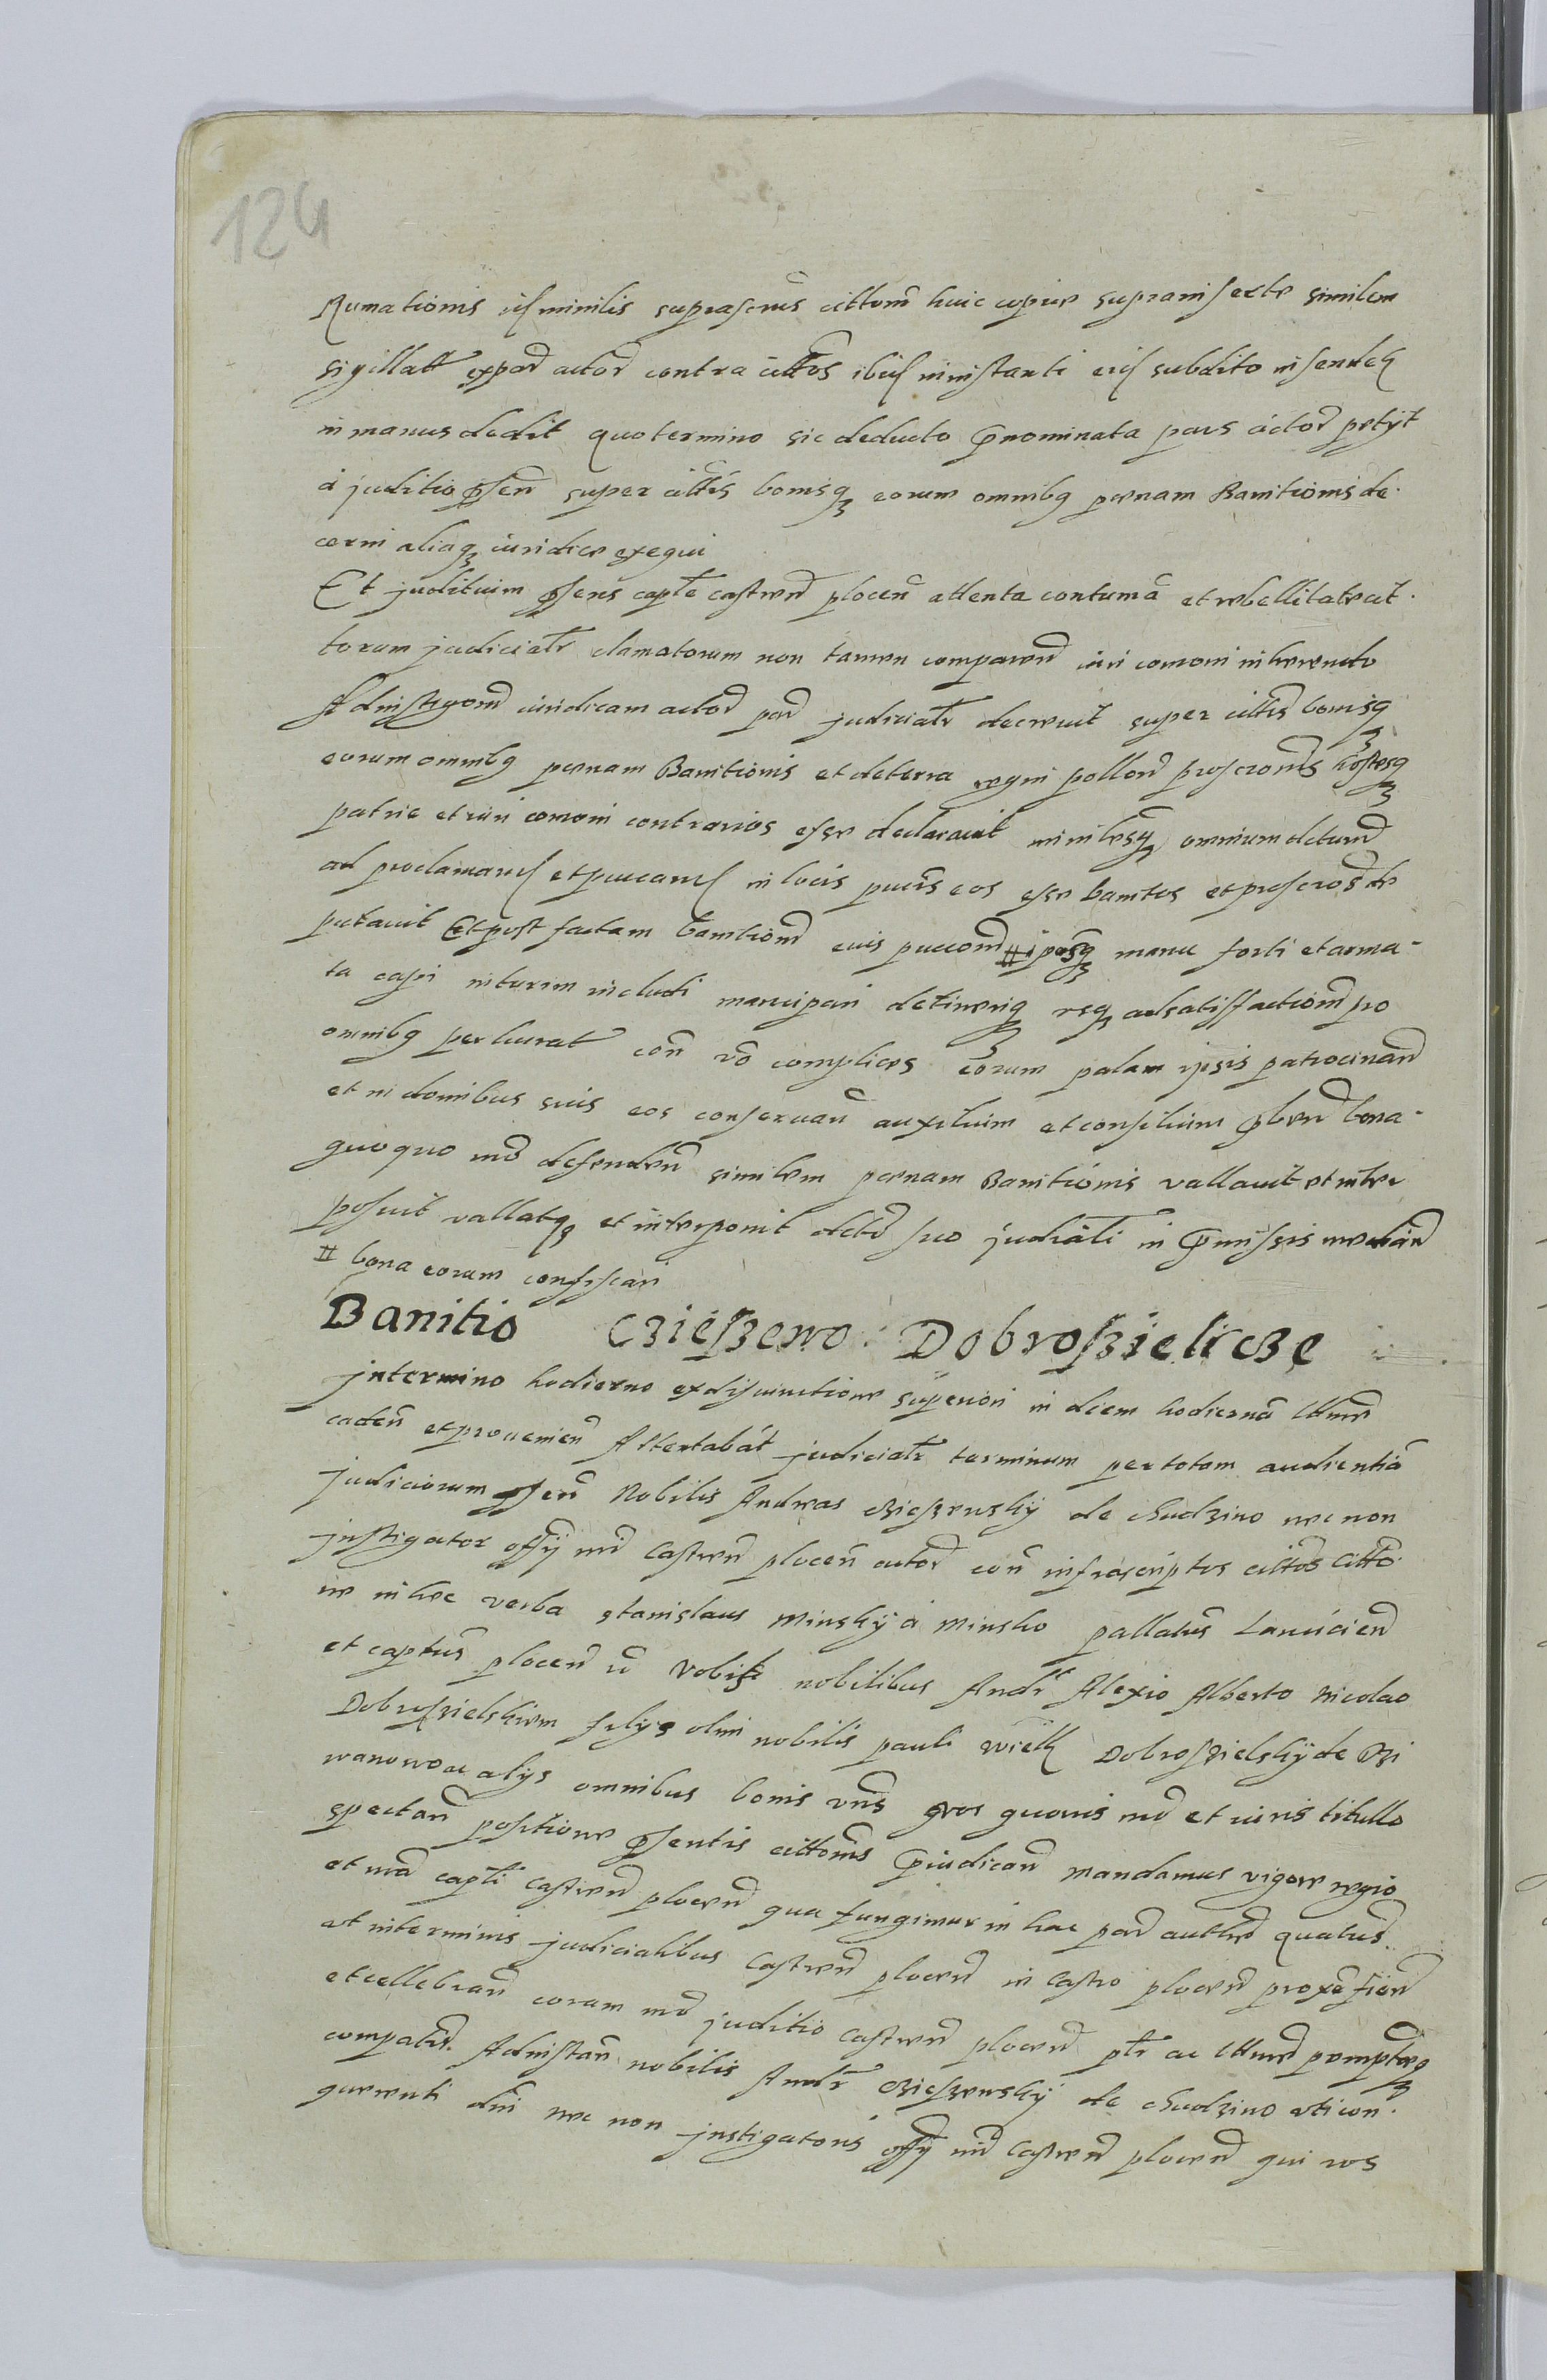 124
Rumationis ministerialis suprascriptus cittatom huic copiae suprainserte similem
sigillatt ex par actor contra cittos ibid ministanti eius subdito insendeß
in manus dedit quo termino sic deducto pnominata pars actor petÿt
á juditio psen super cittis bonisq eorum omnibq penam Banitionis de.
cerni aliaq iuridice exequi
Et juditium psens captle castren plocen attenta contuma et rebellitate cit.
torum judicialr clamatorum non tamen comparen iuri comoni inherendo
Ad instigaom iuridicam actor par judicialr decreuit super cittis bonisq
eorum omnibq penam Banitionis et de terra regni pollon proscronis hostesq
patrie et iuri comoni contrarios esse declarauit ministesq omnium
ad proclamand et pucand in locis pucis eos esse banitos et proscros de
putauit Et post factam banitionem eius pucaom # iposq manu forti et arma-
ta capi in turim includi mancipari detineriq vsq ad satisfactiom pro
omnibq per lucrat con vo complices eorum palam ipsis patrocinan
et in domibus suis eos conseruan auxilium et consilium pben bona-
quoquo mo defenden similem penam Banitionis vallauit et inter
posuit vallatq et interponit dcto suo judiciali in pmissis median
# bona eorum confiscari
Banitio Czießewo Dobroßieliczę
jn termino hodierno ex disiunctione superiori in diem hodierna
caden et prouenien Attentabat judicialr terminum per totam audientia
judiciorum psen Nobilis Andreas Czießewskÿ de Chudzino nec non
jnstigator offÿ nri Castren plocen actor con infrascriptos cittos citto.
ne in hec verba Stanislaus Minskÿ á Minsko pallatus Lancicien
et captus plocen Vobis nobilibus Andr Alexio Alberto Nicolao
Dobroßielskiem filÿs olim nobilis pauli Dobroßielskÿ de
wanowo ac alÿs omnibus bonis vris quouis mo et iuris titullo
spectan positione psentis cittonis piudican mandamus vigore regio
et nra capti Castren plocen qua fungimur in hac par autte quatus
at in terminis judicialibus Castren plocen in Castro plocen proxe fien
et cellebran coram nro juditio Castren plocen ptr ac pemptorq
compatis. Ad instan nobilis Andr Czießewskÿ de Chudzino vti con.
querenti dni nec non jnstigatoris offÿ nri Castren plocen qui vos